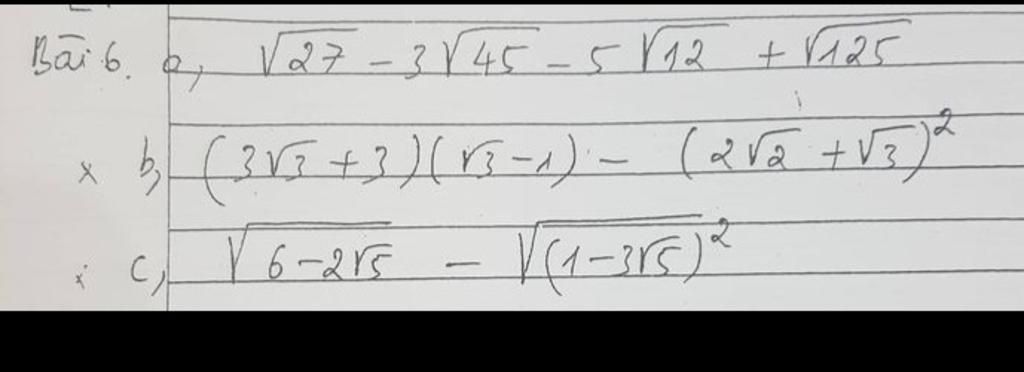 Bài 6. a, √27 - 3√45 - 5√12 + √125
x b, (3√3 + 3)(√3 - 1) - (2√2 + √3)²
c, √(6 - 2√5) - √((1 - 3√5)²)